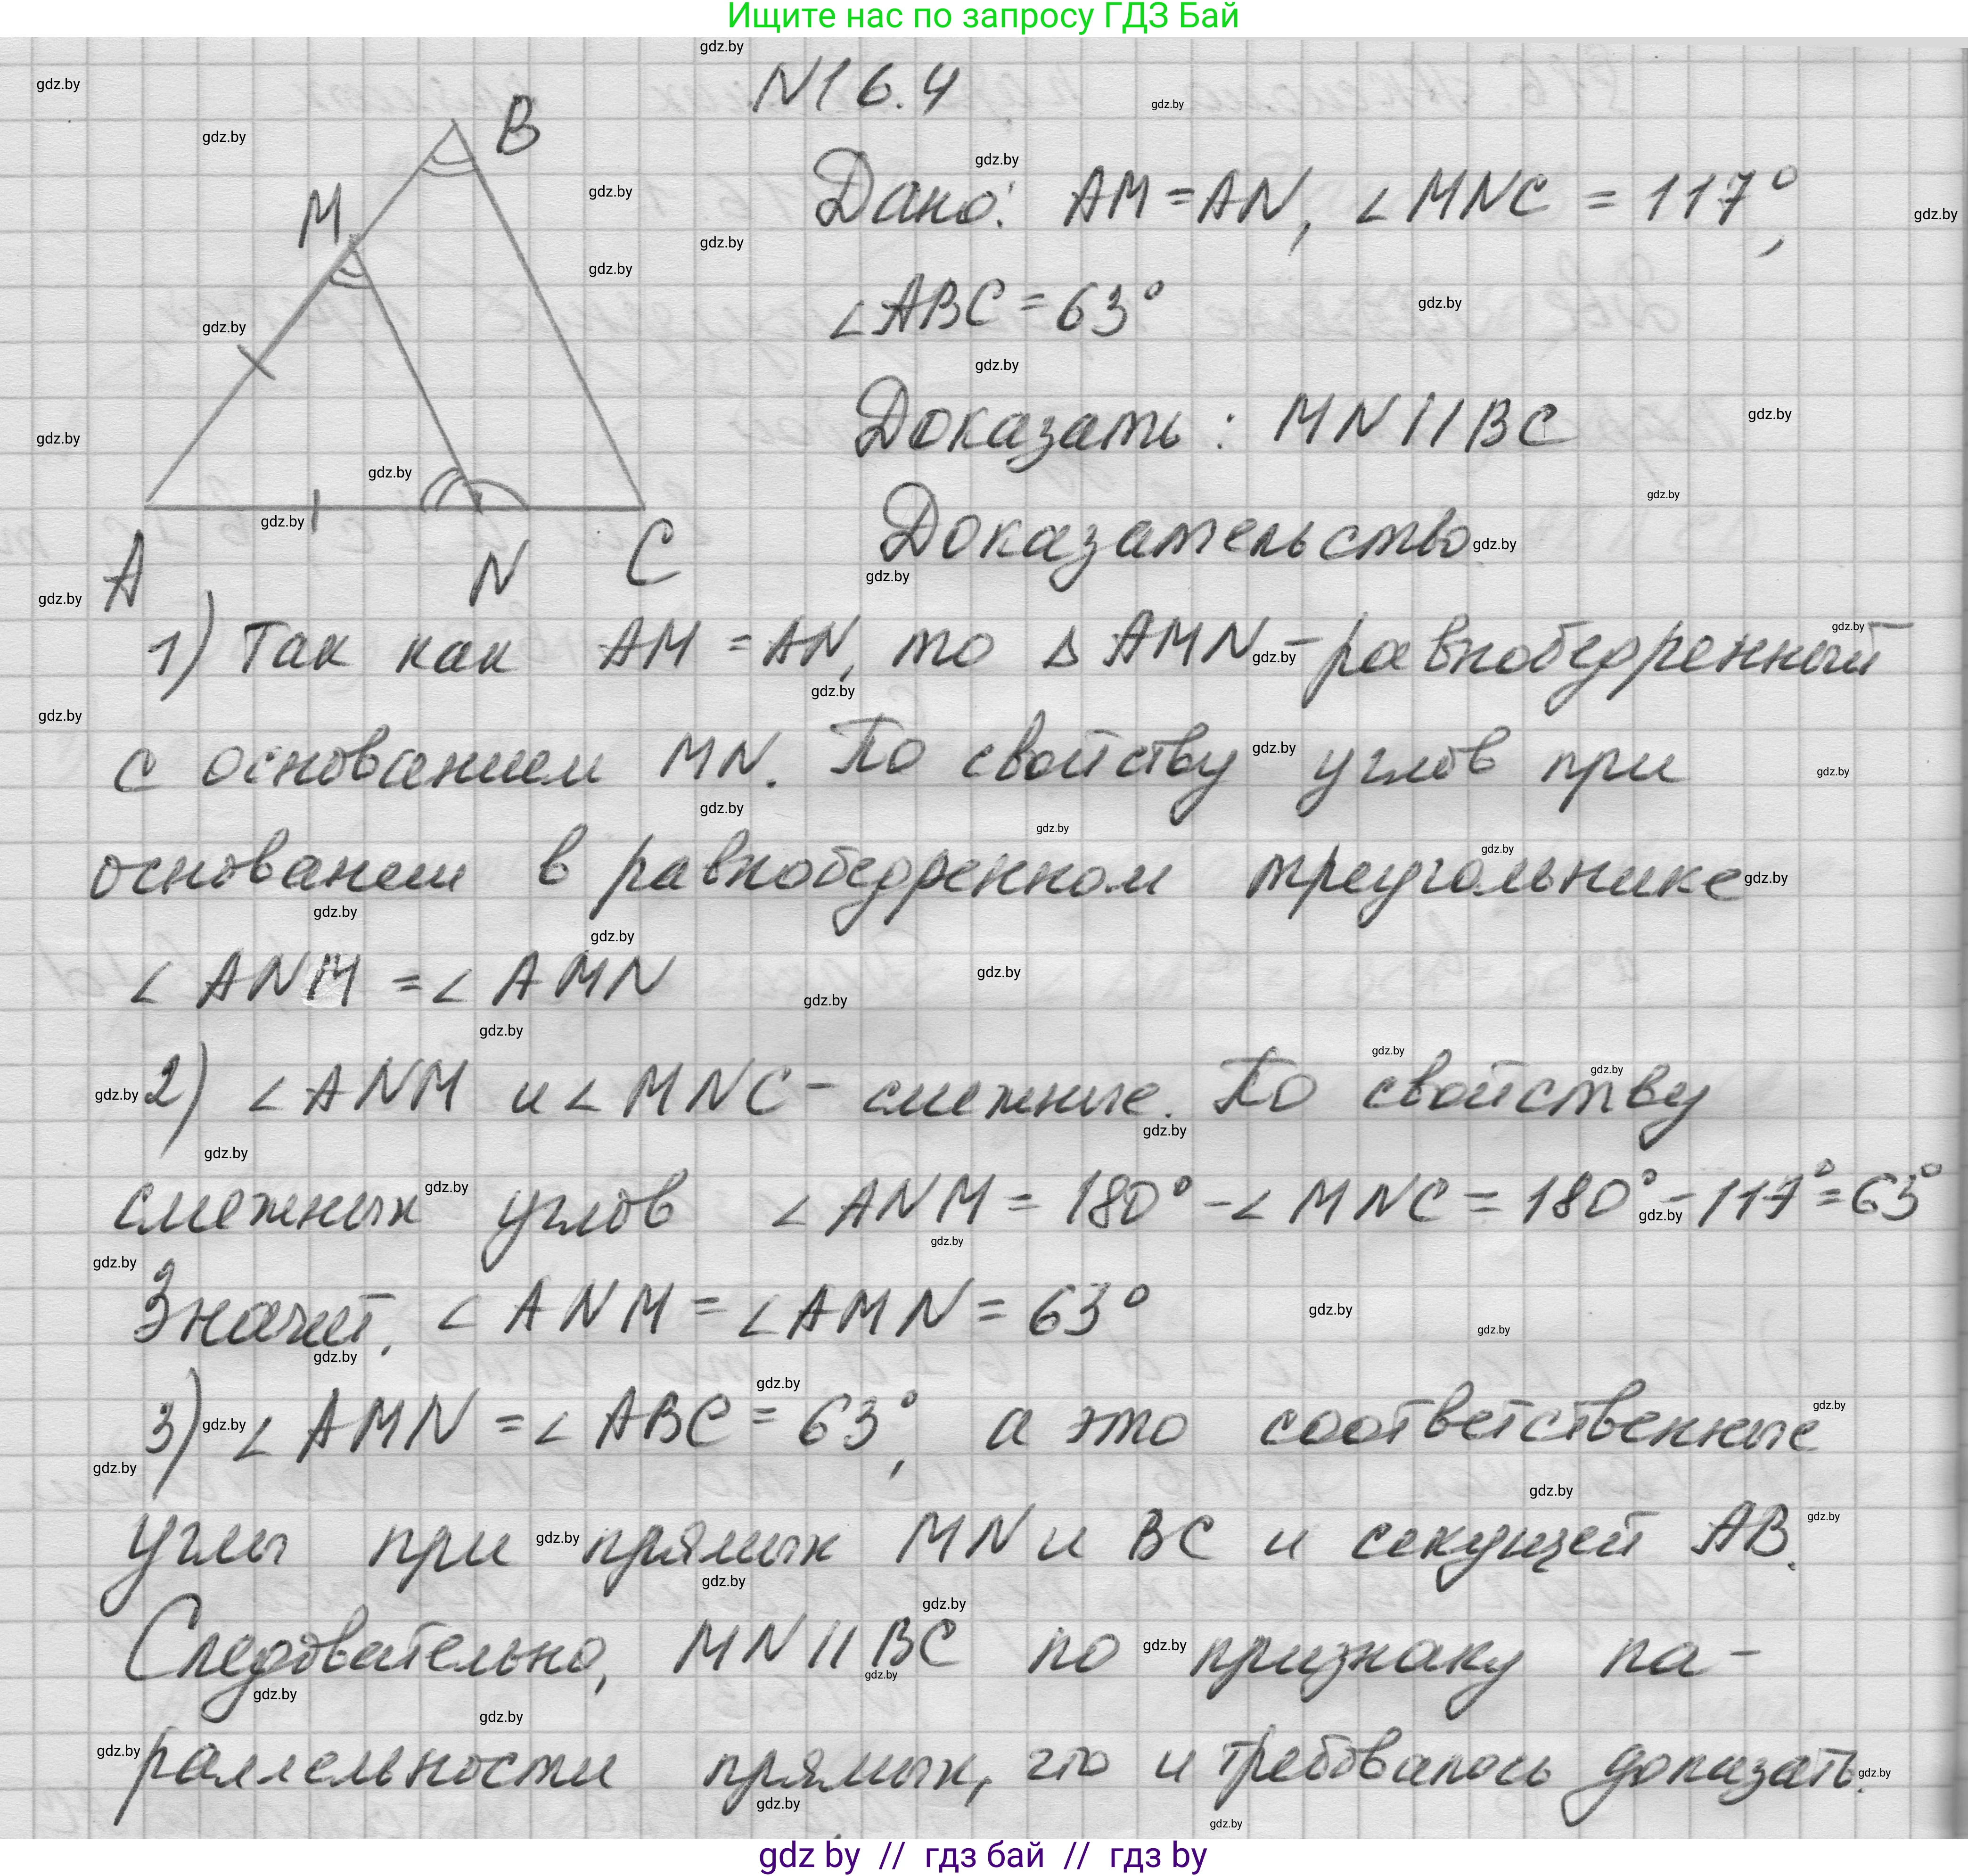 Ищите нас по запросу ГДЗ Бай
N16.4
B
M
A
N
C
Дано: AM = AN, ∠MNC = 117°,
∠ABC = 63°
Доказать: MN || BC
Доказательство
1) Так как AM = AN, то Δ AMN – равнобедренный
с основанием MN. По свойству углов при
основании в равнобедренном треугольнике
∠ANM = ∠AMN
2) ∠ANM и ∠MNC – смежные. По свойству
смежных углов ∠ANM = 180° - ∠MNC = 180° - 117° = 63°
Значит, ∠ANM = ∠AMN = 63°
3) ∠AMN = ∠ABC = 63°, а это соответственные
углы при прямых MN и BC и секущей AB.
Следовательно, MN || BC по признаку па-
раллельности прямых, что и требовалось доказать.
gdz.by
gdz by // гдз бай // гдз by